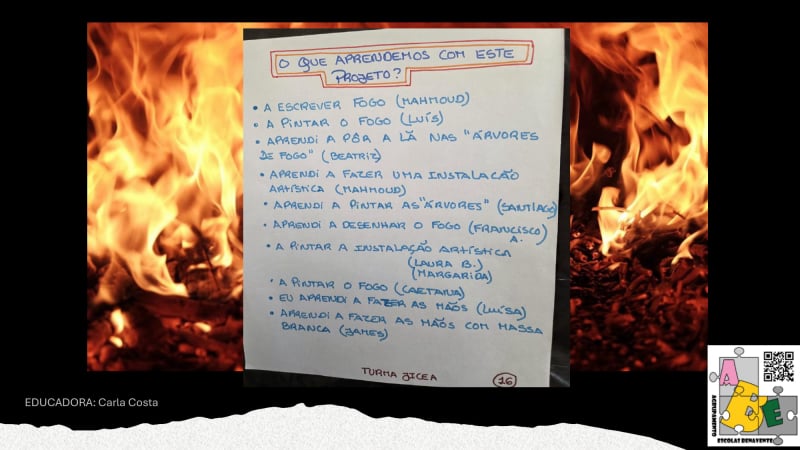 O QUE APRENDEMOS COM ESTE
PROJETO?
• A ESCREVER FOGO (MAHMOUD)
• A PINTAR O FOGO (LUÍS)
• APRENDI A PÔR A LÃ NAS "ÁRVORES
DE FOGO" (BEATRIZ)
• APRENDI A FAZER UMA INSTALAÇÃO
ARTÍSTICA (MAHMOUD)
• APRENDI A PINTAR AS "ÁRVORES" (SANTIAGO)
• APRENDI A DESENHAR O FOGO (FRANCISCO
A.)
• A PINTAR A INSTALAÇÃO ARTÍSTICA
(LAURA B.)
(MARGARIDA)
• A PINTAR O FOGO (CAETANA)
• EU APRENDI A FAZER AS MÃOS (LUÍSA)
• APRENDI A FAZER AS MÃOS COM MASSA
BRANCA (JAMES)
TURMA JICEA
16
EDUCADORA: Carla Costa
ABE
AGRUPAMENTO
ESCOLAS BENAVENTE